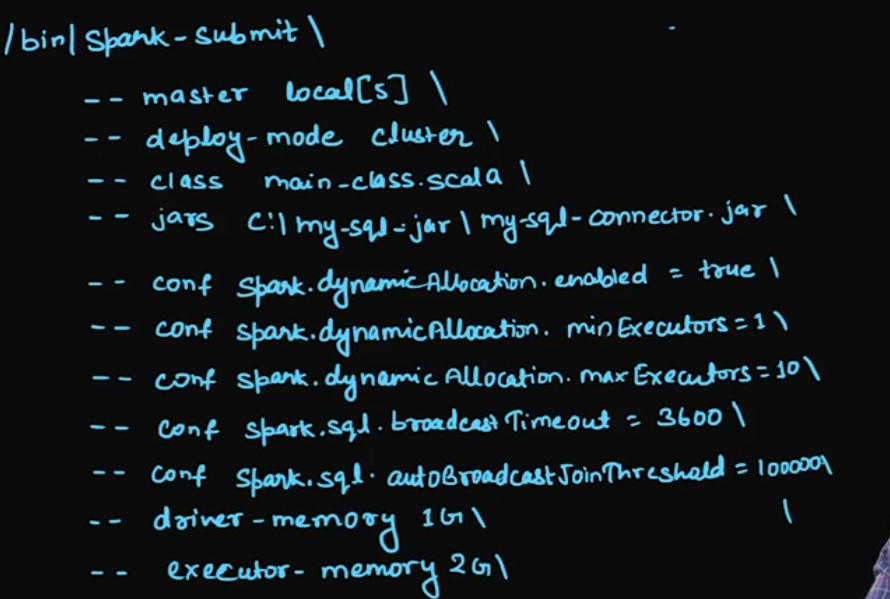 /bin/spark-submit \
-- master local[5] \
-- deploy-mode cluster \
-- class main-class.scala \
-- jars C:\my-sql-jar\my-sql-connector.jar \
-- conf spark.dynamicAllocation.enabled = true \
-- conf spark.dynamicAllocation.minExecutors = 1 \
-- conf spark.dynamicAllocation.maxExecutors = 10 \
-- conf spark.sql.broadcastTimeout = 3600 \
-- conf spark.sql.autoBroadcastJoinThreshold = 100000\
\
-- driver-memory 1G \
-- executor-memory 2G \